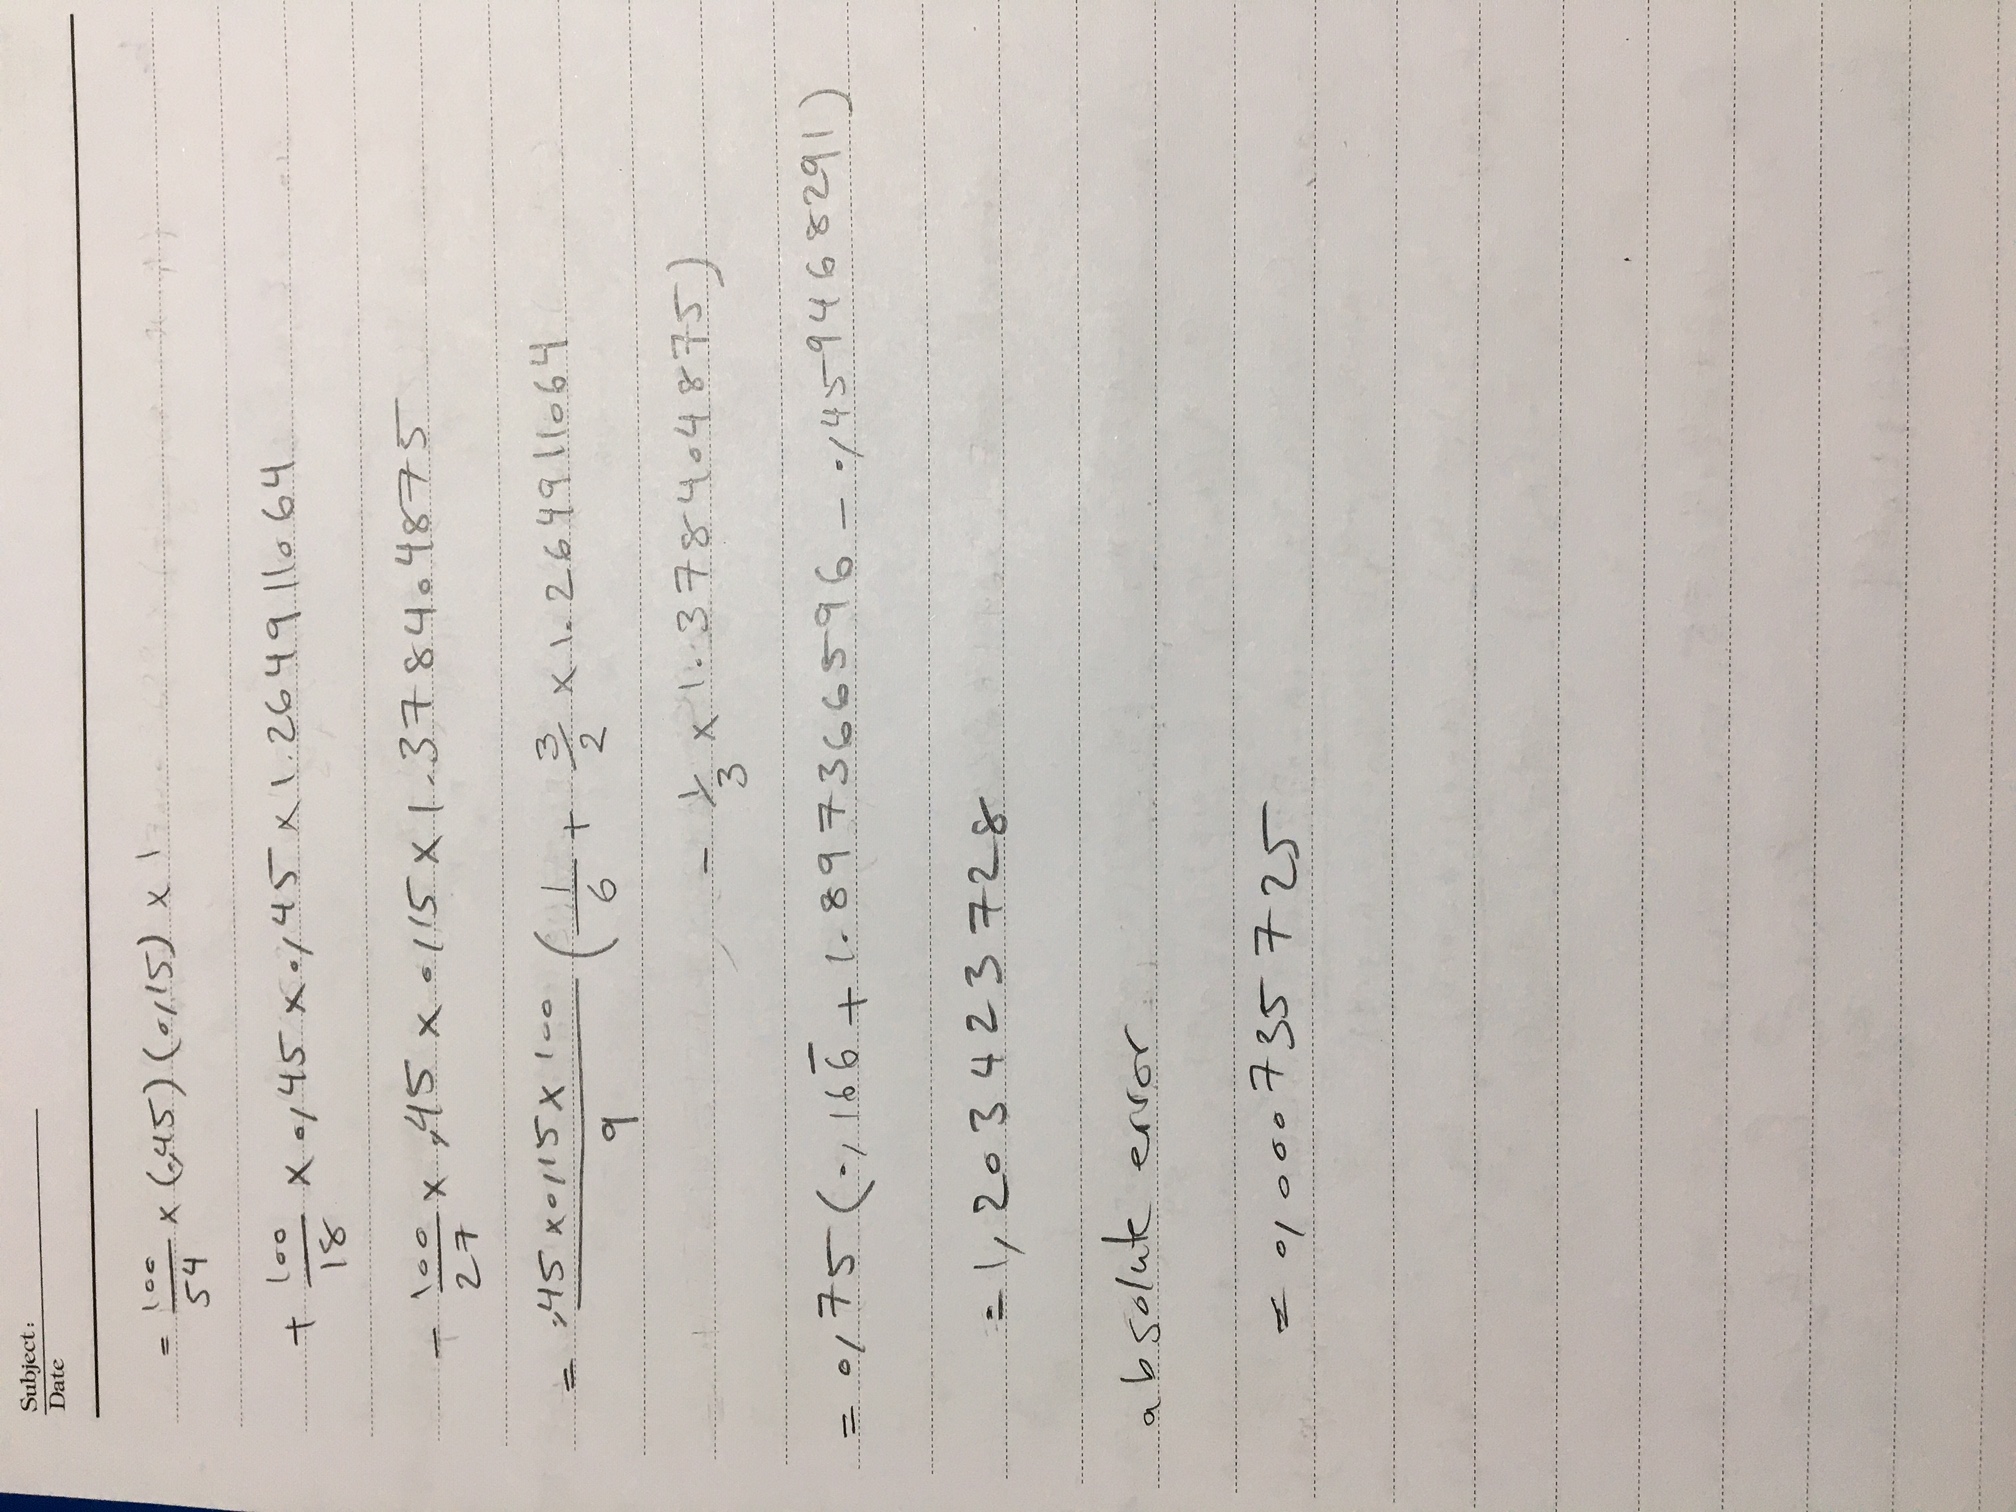 Subject:
Date
= 100/54 × (0,45) (0,15) × 1
+ 100/18 × 0,45 × 0,45 × 1.264911064
- 100/27 × 0,45 × 0,15 × 1.378404875
= 0,45 × 0,15 × 100 / 9 ( 1/6 + 3/2 × 1.264911064
- 1/3 × 1.378404875)
= 0,75 (0,166̄ + 1.897366596 - 0,459468291)
= 1,203423728
absolute error
= 0,000735725